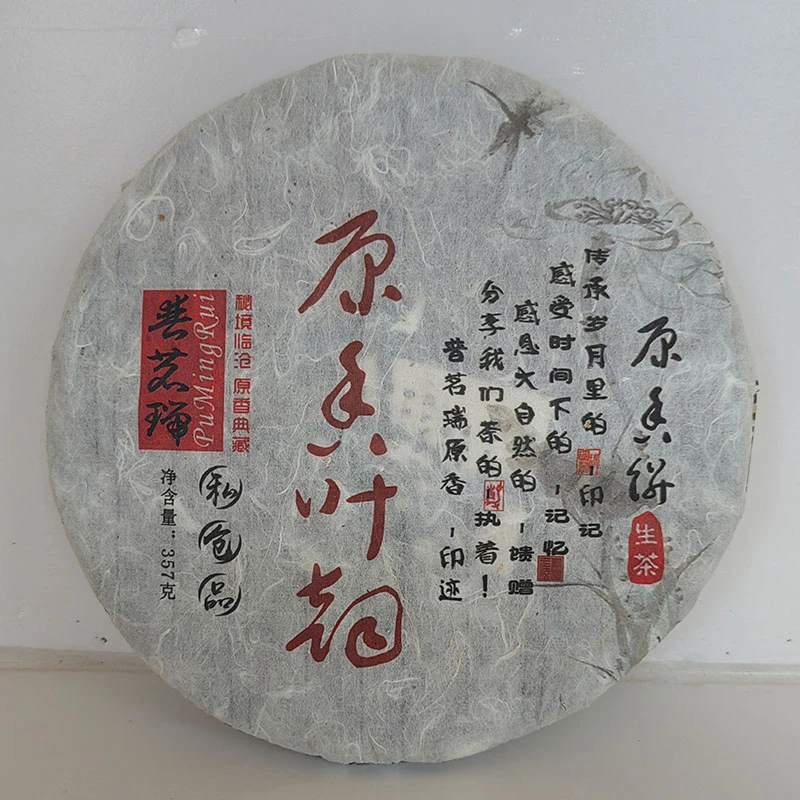 原香饼
生茶
传承岁月里的-印记
感受时间下的-记忆
感恩大自然的-馈赠
分享我们茶的-执着!
普茗瑞原香-印迹
原香叶韵
秘境临沧 原香典藏
普茗瑞
PuMingRui
私仓品
净含量:357克